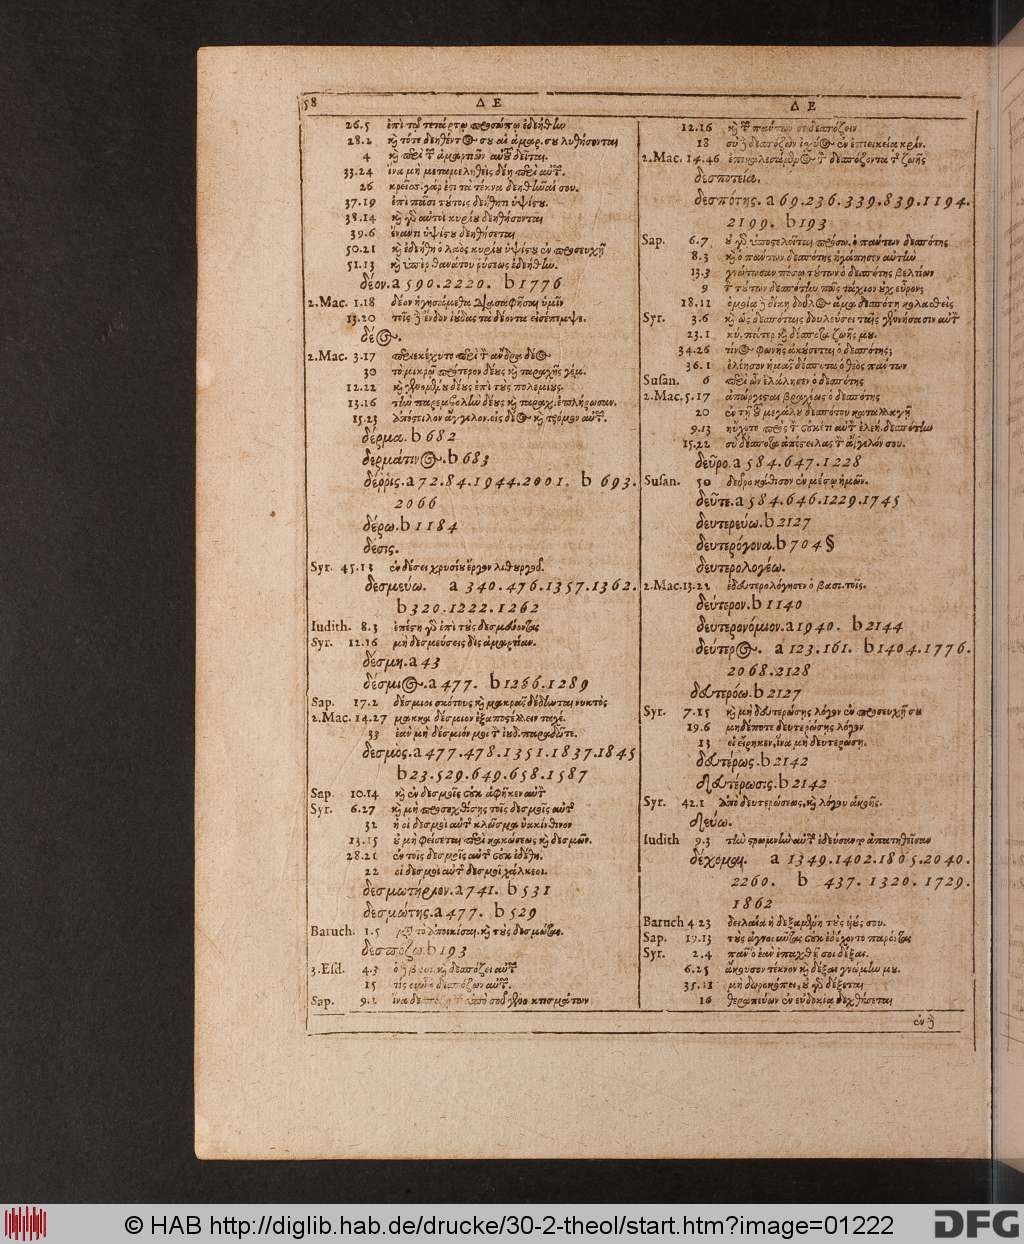 58 Δ Ε Δ Ε
26.5 ἐπὶ τῷ τετάρτῳ προσώπῳ ἐδεήθην
28.2 καὶ τότε δεηθέντος σου αἱ ἁμαρ. σου λυθήσονται
4 καὶ περὶ τῶν ἁμαρτιῶν αὐτοῦ δεῖται.
33.24 ἵνα μὴ μεταμεληθεὶς δέῃ περὶ αὐτῶν.
26 κρεῖσσ. γάρ ἐστι τὰ τέκνα δεηθῆναί σου.
37.19 ἐπὶ πᾶσι τούτοις δεήθητι ὑψίστου.
38.14 καὶ γὰρ αὐτοὶ κυρίου δεηθήσονται
39.6 ἔναντι ὑψίστου δεηθήσεται
50.21 καὶ ἐδεήθη ὁ λαὸς κυρίου ὑψίστου ἐν προσευχῇ
51.13 καὶ ὑπὲρ θανάτου ῥύσεως ἐδεήθην.
δέον. a 590. 2220. b 1776
2. Mac. 1.18 δέον ἡγησάμεθα διασαφῆσαι ὑμῖν
13.20 τοῖς δὲ ἔνδον ἰούδας τὰ δέοντα εἰσέπεμψε.
δέος.
2. Mac. 3.17 περιεκέχυτο περὶ τὸν ἄνδρα δέος
30 τὸ μικρῷ πρότερον δέους καὶ ταραχῆς γέμ.
12.22 καὶ γενομένου δέους ἐπὶ τοὺς πολεμίους.
13.16 τὴν παρεμβολὴν δέους καὶ ταραχ. ἐπλήρωσαν.
15.23 ἀπόστειλον ἄγγελον. εἰς δέος καὶ τρόμον αὐτῶν.
δέρμα. b 682
δερμάτινος. b 683
δέῤῥις. a 72. 84. 1944. 2001. b 693.
2066
δέρω. b 1184
δέσις.
Syr. 45.13 ἐν δέσει χρυσίου ἔργον λιθουργοῦ.
δεσμεύω. a 340. 476. 1357. 1362.
b 320. 1222. 1262
Iudith. 8.3 ἐπέστη γὰρ ἐπὶ τοὺς δεσμεύοντας
Syr. 12.16 μὴ δεσμεύσεις δὶς ἁμαρτίαν.
δέσμη. a 43
δέσμιος. a 477. b 1266. 1289
Sap. 17.2 δέσμιοι σκότους καὶ μακρᾶς πεδῆται νυκτὸς
2. Mac. 14.27 μακκα δέσμιον ἐξαποστέλλειν ταχέ.
33 ἐὰν μὴ δέσμιόν μοι τὸν ἰούδ. παραδῶτε.
δεσμὸς. a 477. 478. 1351. 1837. 1845
b 23. 529. 649. 658. 1587
Sap. 10.14 καὶ ἐν δεσμοῖς οὐκ ἀφῆκεν αὐτὸν
Syr. 6.27 καὶ μὴ προσοχθίσῃς τοῖς δεσμοῖς αὐτοῦ
32 ἢ οἱ δεσμοὶ αὐτοῦ κλῶσμα ὑακίνθινον
13.15 οὐ μὴ φείσεται περὶ κακώσεως καὶ δεσμῶν.
28.21 ἐν τοῖς δεσμοῖς αὐτοῦ οὐκ ἐδέθη.
22 οἱ δεσμοὶ αὐτοῦ δεσμοὶ χάλκεοι.
δεσμωτήριον. a 741. b 531
δεσμώτης. a 477. b 529
Baruch. 1.5 τὸ ἀποικίσαι. καὶ τοὺς δεσμώτας.
δεσπόζω. b 193
3. Esd. 4.3 ὁ δὲ βασι. καὶ δεσπόζει αὐτῶν
15 τίς ὁ δεσπόζων αὐτῶν.
Sap. 9.2 ἵνα δεσπόζῃ τῶν ὑπὸ σοῦ γενο κτισμάτων
12.16 καὶ τὸ πάντων σε δεσπόζειν
18 σὺ δὲ δεσπόζων ἰσχύος ἐν ἐπιεικείᾳ κρίν.
2. Mac. 14.46 ἐπικαλεσάμενος τὸν δεσπόζοντα τῆς ζωῆς
δεσποτεία.
δεσπότης. a 69. 236. 339. 839. 1194.
2199. b 193
Sap. 6.7 οὐ γὰρ ὑποστελεῖται πρόσω. ὁ πάντων δεσπότης
8.3 καὶ ὁ πάντων δεσπότης ἠγάπησεν αὐτὴν
13.3 γνώτωσαν πόσῳ τούτων ὁ δεσπότης βελτίων
9 τὸν τούτων δεσπότην πῶς τάχιον οὐχ εὗρον;
18.11 ὁμοίᾳ δὲ δίκῃ δοῦλος ἅμα δεσπότῃ κολασθεὶς
Syr. 3.6 καὶ ὡς δεσπόταις δουλεύσει τοῖς γεννήσασιν αὐτὸν
23.1 κύ. πάτερ καὶ δέσποτα ζωῆς μου.
34.26 τίνος φωνῆς ἀκούσεται ὁ δεσπότης;
36.1 ἐλέησον ἡμᾶς δέσποτα ὁ θεὸς πάντων
Susan. 6 περὶ ὧν ἐλάλησεν ὁ δεσπότης
2. Mac. 5.17 ἀπώργισται βραχέως ὁ δεσπότης
20 ἐν τῇ τοῦ μεγάλου δεσπότου καταλλαγῇ
9.13 ηὔχετο πρὸς τὸν οὐκέτι αὐτὸν ἐλεή. δεσπότην
15.22 σὺ δέσποτα ἀπέστειλας τὸν ἄγγελόν σου.
δεῦρο. a 584. 647. 1228
Susan. 50 δεῦρο κάθισον ἐν μέσῳ ἡμῶν.
δεῦτε. a 584. 646. 1229. 1745
δευτερεύω. b 2127
δευτερόγονα. b 704 §
δευτερολογέω.
2. Mac. 13.22 ἐδευτερολόγησεν ὁ βασι. τοῖς.
δεύτερον. b 1140
δευτερονόμιον. a 1940. b 2144
δεύτερος. a 123. 161. b 1404. 1776.
2068. 2128
δευτερόω. b 2127
Syr. 7.15 καὶ μὴ δευτερώσῃς λόγον ἐν προσευχῇ σου
19.6 μηδέποτε δευτερώσῃς λόγον
13 εἰ εἴρηκεν, ἵνα μὴ δευτερώσῃ.
δευτέρως. b 2142
δευτέρωσις. b 2142
Syr. 42.1 ἀπὸ δευτερώσεως, καὶ λόγου ἀκοῆς.
δεύω.
Iudith 9.3 τὴν στρωμνὴν αὐτῶν ἀπατηθεῖσαν
δέχομαι. a 1349. 1402. 1805. 2040.
2260. b 437. 1320. 1729.
1862
Baruch 4 23 δειλαία ἡ δεξαμένη τοὺς υἱούς σου.
Sap. 19.13 τοὺς ἀγνοοῦντας οὐκ ἐδέχοντο παρόντας
Syr. 2.4 πᾶν ὃ ἐὰν ἐπαχθῇ σοι δέξαι.
6.25 ἄκουσον τέκνον καὶ δέξαι γνώμην μου.
35.11 μὴ δωροκόπει, οὐ γὰρ δέξεται
16 θεραπεύων ἐν εὐδοκίᾳ δεχθήσεται
© HAB http://diglib.hab.de/drucke/30-2-theol/start.htm?image=01222
DFG